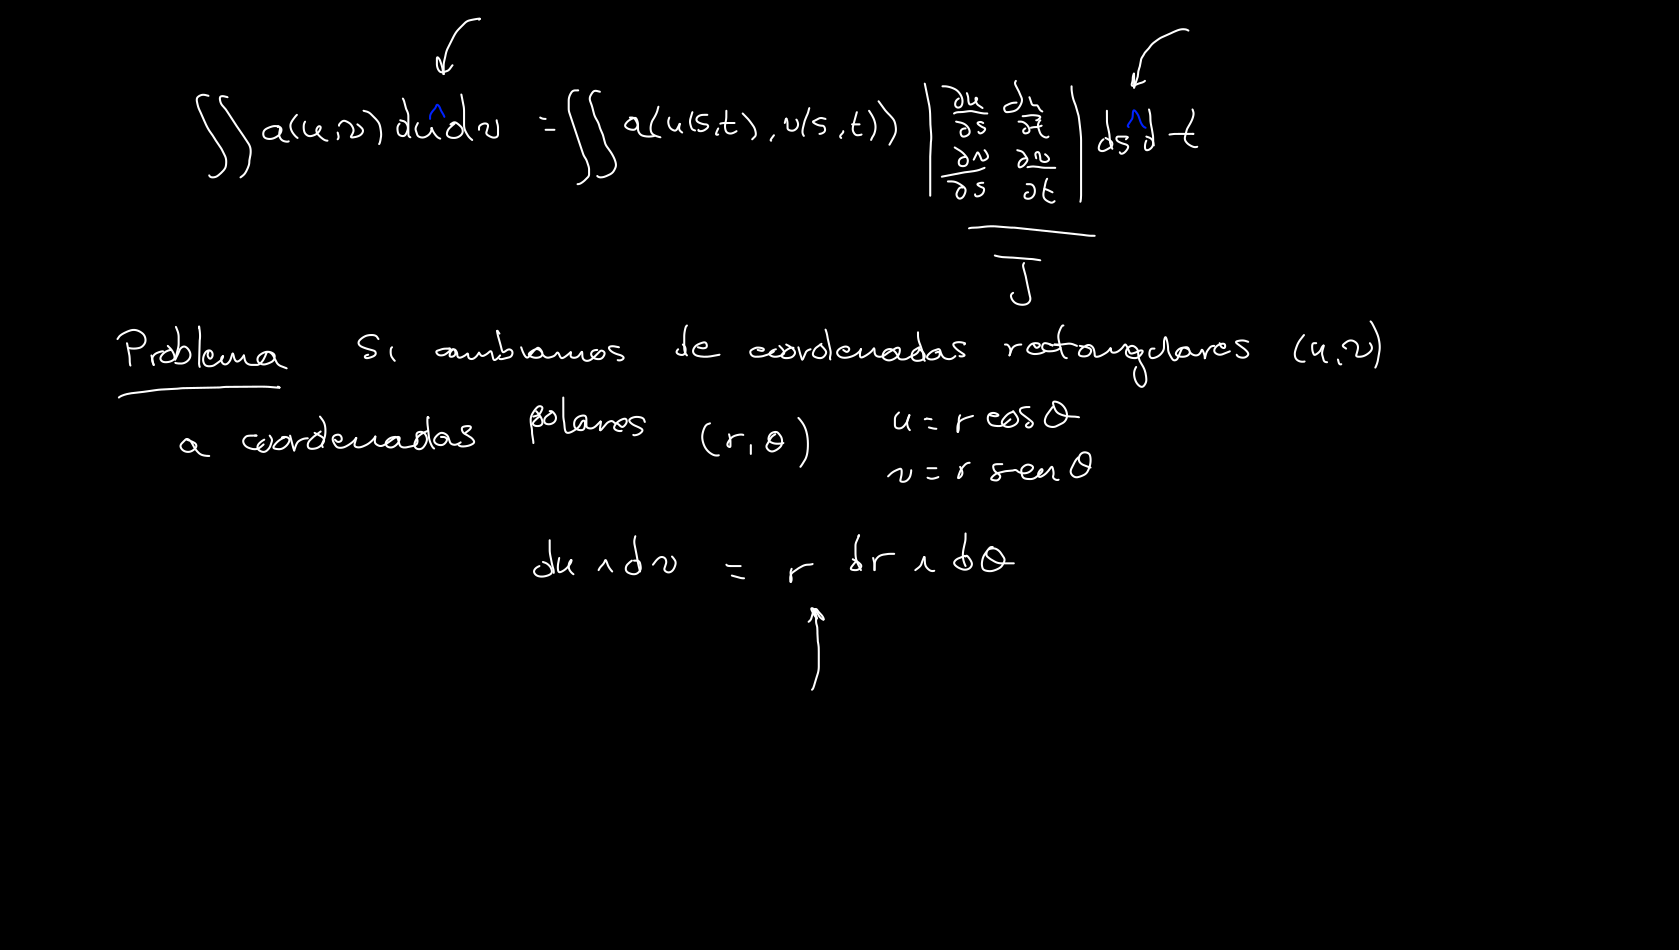 ∬ a(u,v) du∧dv = ∬ a(u(s,t), v(s,t)) | ∂u/∂s ∂u/∂t ∂v/∂s ∂v/∂t | ds∧dt
J
Problema Si cambiamos de coordenadas rectangulares (u,v)
a coordenadas polares (r,θ) u = r cosθ
v = r senθ
du ∧ dv = r dr ∧ dθ